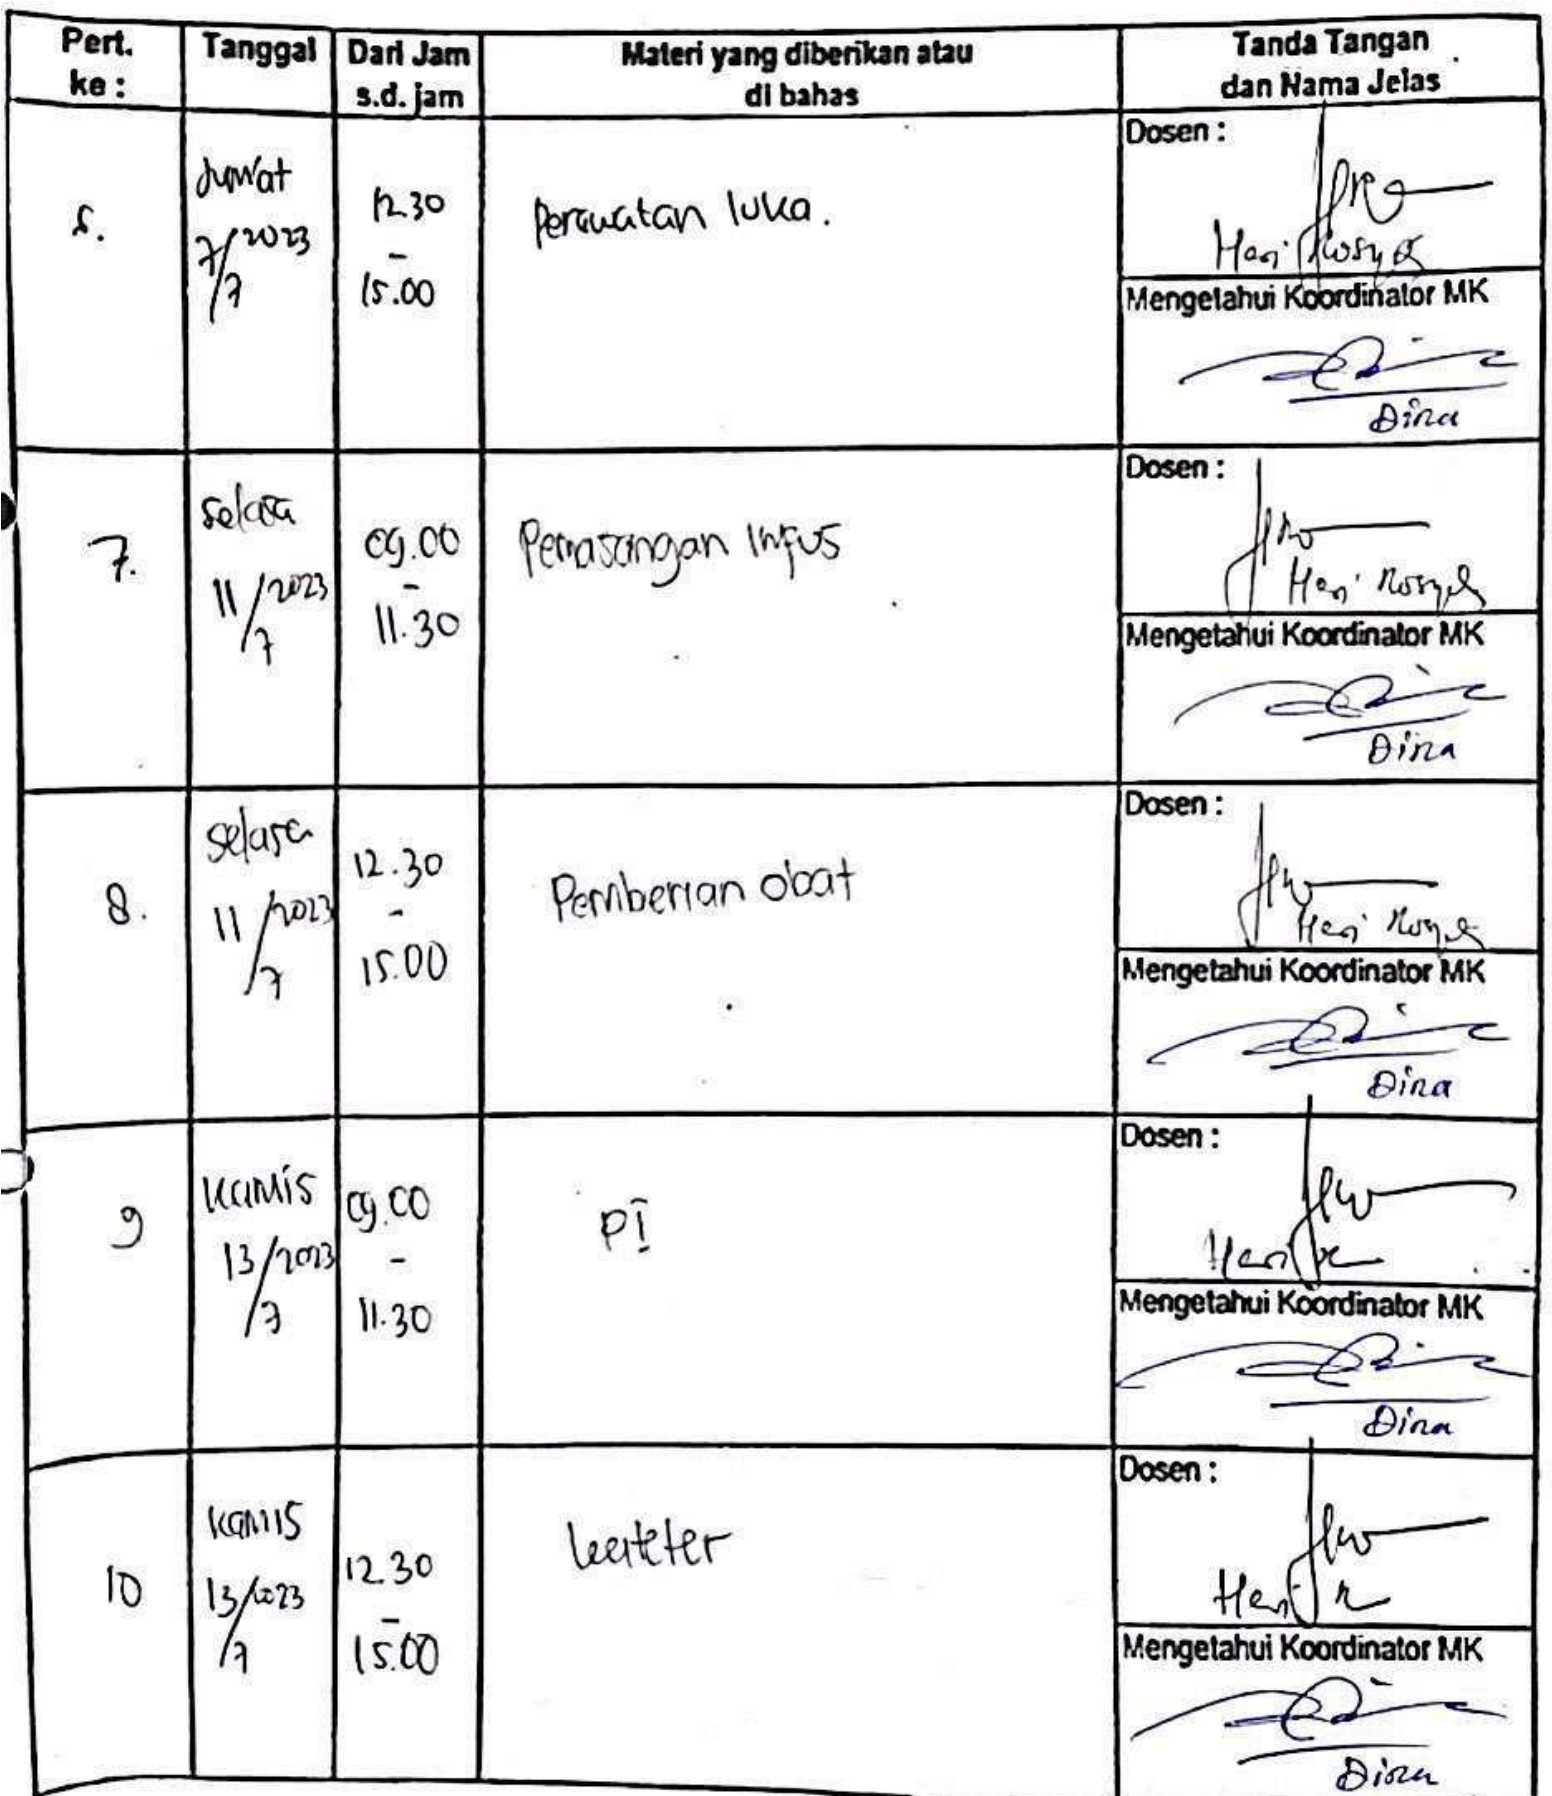 Pert. ke :
Tanggal
Dari Jam s.d. jam
Materi yang diberikan atau di bahas
Tanda Tangan dan Nama Jelas
Jum'at
7/7 2023
12.30
-
15.00
Perawatan luka.
Dosen :
Heri Rosyd
Mengetahui Koordinator MK
Dina
7.
Selasa
11/7 2023
09.00
-
11.30
Pemasangan Infus
Dosen :
Heri Rosyd
Mengetahui Koordinator MK
Dina
8.
Selasa
11/7 2023
12.30
-
15.00
Pemberian obat
Dosen :
Heri Rosyd
Mengetahui Koordinator MK
Dina
9
Kamis
13/7 2023
09.00
-
11.30
PI
Dosen :
Heri R
Mengetahui Koordinator MK
Dina
10
Kamis
13/7 2023
12.30
-
15.00
Dosen :
Heri R
Mengetahui Koordinator MK
Dina